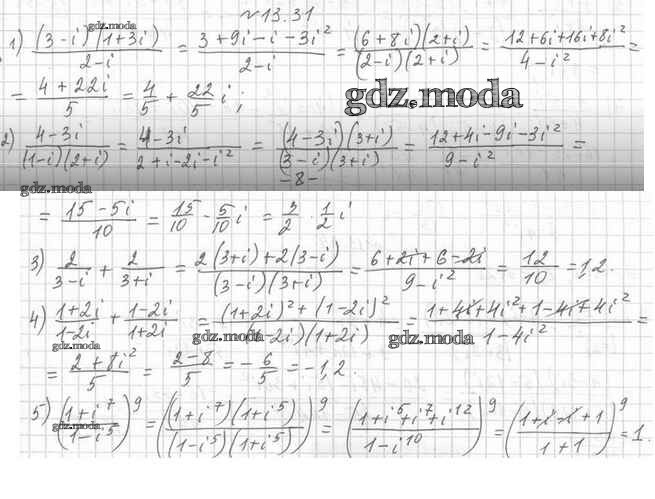 №13.31
gdz.moda
1) (3-i)(1+3i) / 2-i = 3+9i-i-3i² / 2-i = (6+8i)(2+i) / (2-i)(2+i) = 12+6i+16i+8i² / 4-i² =
= 4+22i / 5 = 4/5 + 22/5 i;
gdz.moda
2) 4-3i / (1-i)(2+i) = 4-3i / 2+i-2i-i² = (4-3i)(3+i) / (3-i)(3+i) = 12+4i-9i-3i² / 9-i² =
-8-
gdz.moda
= 15-5i / 10 = 15/10 - 5/10 i = 3/2 · 1/2 i
3) 2 / 3-i + 2 / 3+i = 2(3+i)+2(3-i) / (3-i)(3+i) = 6+2i+6-2i / 9-i² = 12/10 = 1,2.
4) 1+2i / 1-2i + 1-2i / 1+2i = (1+2i)²+(1-2i)² / (1-2i)(1+2i) = 1+4i+4i²+1-4i+4i² / 1-4i² =
gdz.moda gdz.moda gdz.moda
= 2+8i² / 5 = 2-8 / 5 = -6/5 = -1,2.
5) (1+i⁷ / 1-i⁵)⁹ = ((1+i⁷)(1+i⁵) / (1-i⁵)(1+i⁵))⁹ = (1+i⁵+i⁷+i¹² / 1-i¹⁰)⁹ = (1+i-i+1 / 1+1)⁹ = 1.
gdz.moda